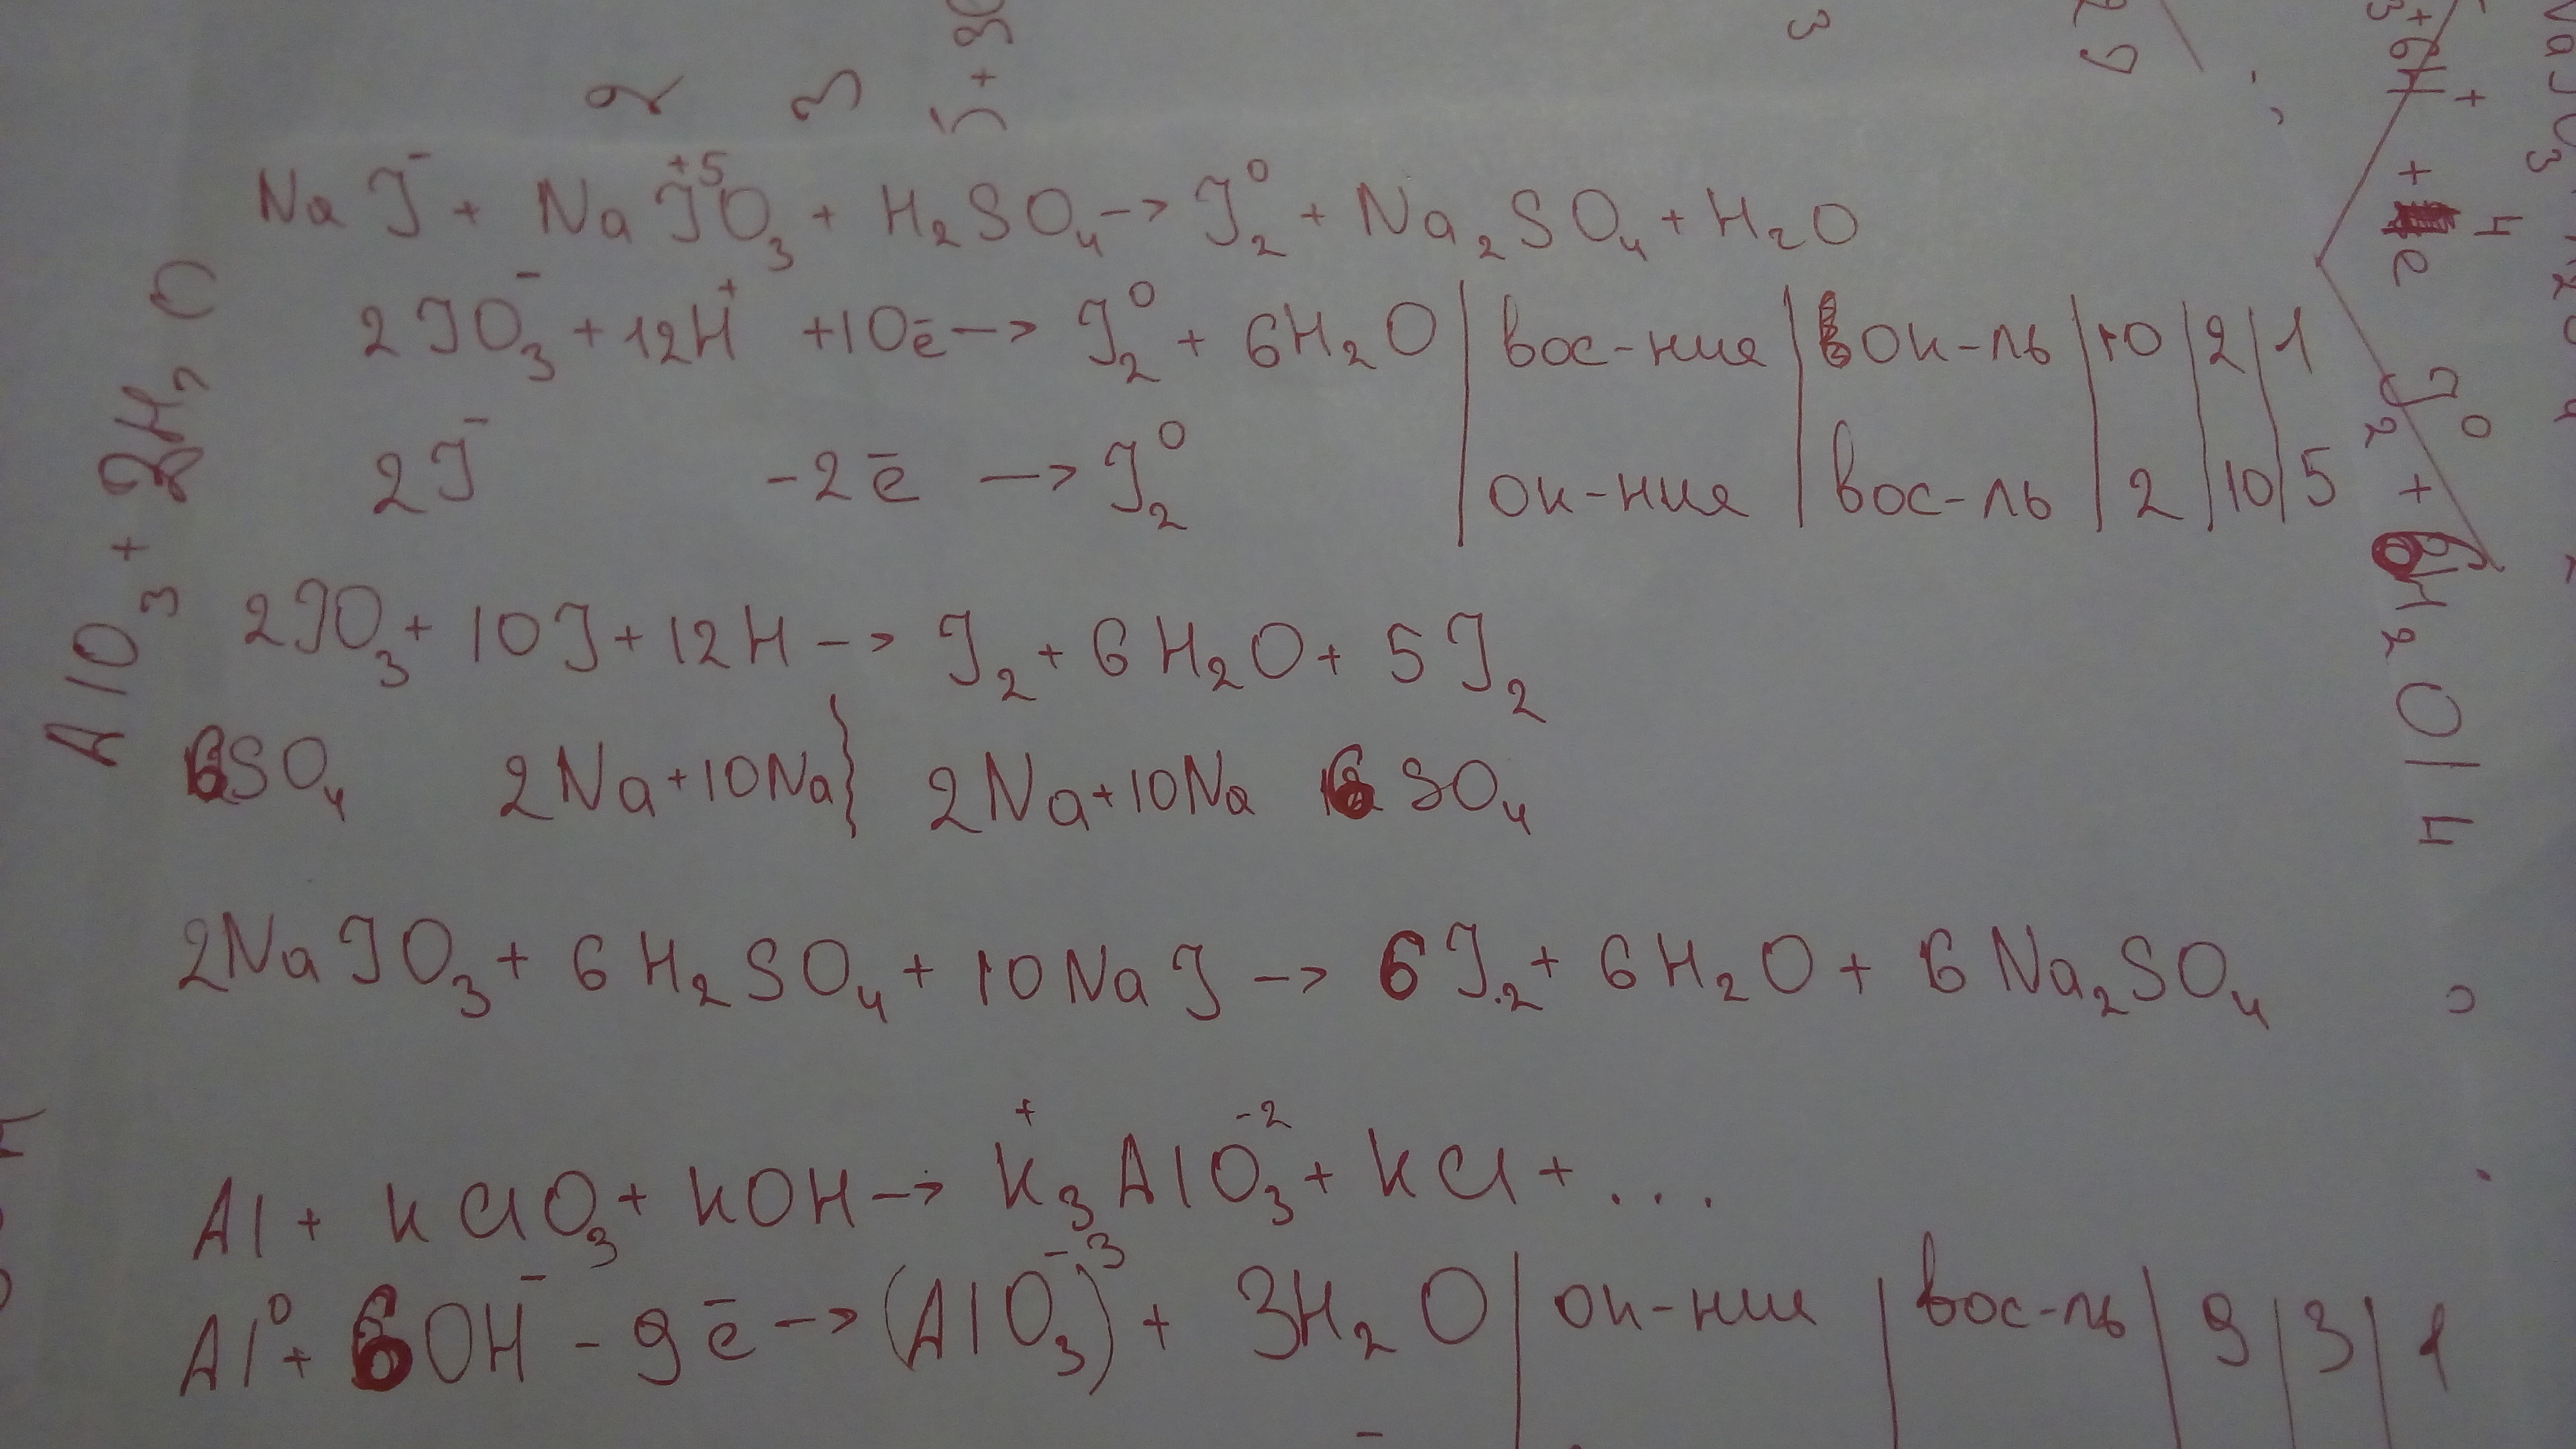 NaJ⁻ + NaJ⁺⁵O₃ + H₂SO₄ -> J₂⁰ + Na₂SO₄ + H₂O
2JO₃⁻ + 12H⁺ + 10ē -> J₂⁰ + 6H₂O | вос-ние | ок-ль | 10 | 2 | 1
2J⁻ - 2ē -> J₂⁰ | ок-ние | вос-ль | 2 | 10 | 5
2JO₃ + 10J + 12H -> J₂ + 6H₂O + 5J₂
6SO₄ 2Na + 10Na} 2Na + 10Na 6SO₄
2NaJO₃ + 6H₂SO₄ + 10NaJ -> 6J₂ + 6H₂O + 6Na₂SO₄
Al + KClO₃ + KOH -> K⁺₃AlO⁻²₃ + KCl + ...
Al⁰ + 6OH⁻ - 9ē -> (AlO₃)⁻³ + 3H₂O | ок-ние | вос-ль | 9 | 3 | 1
AlO₃ + 3H₂O